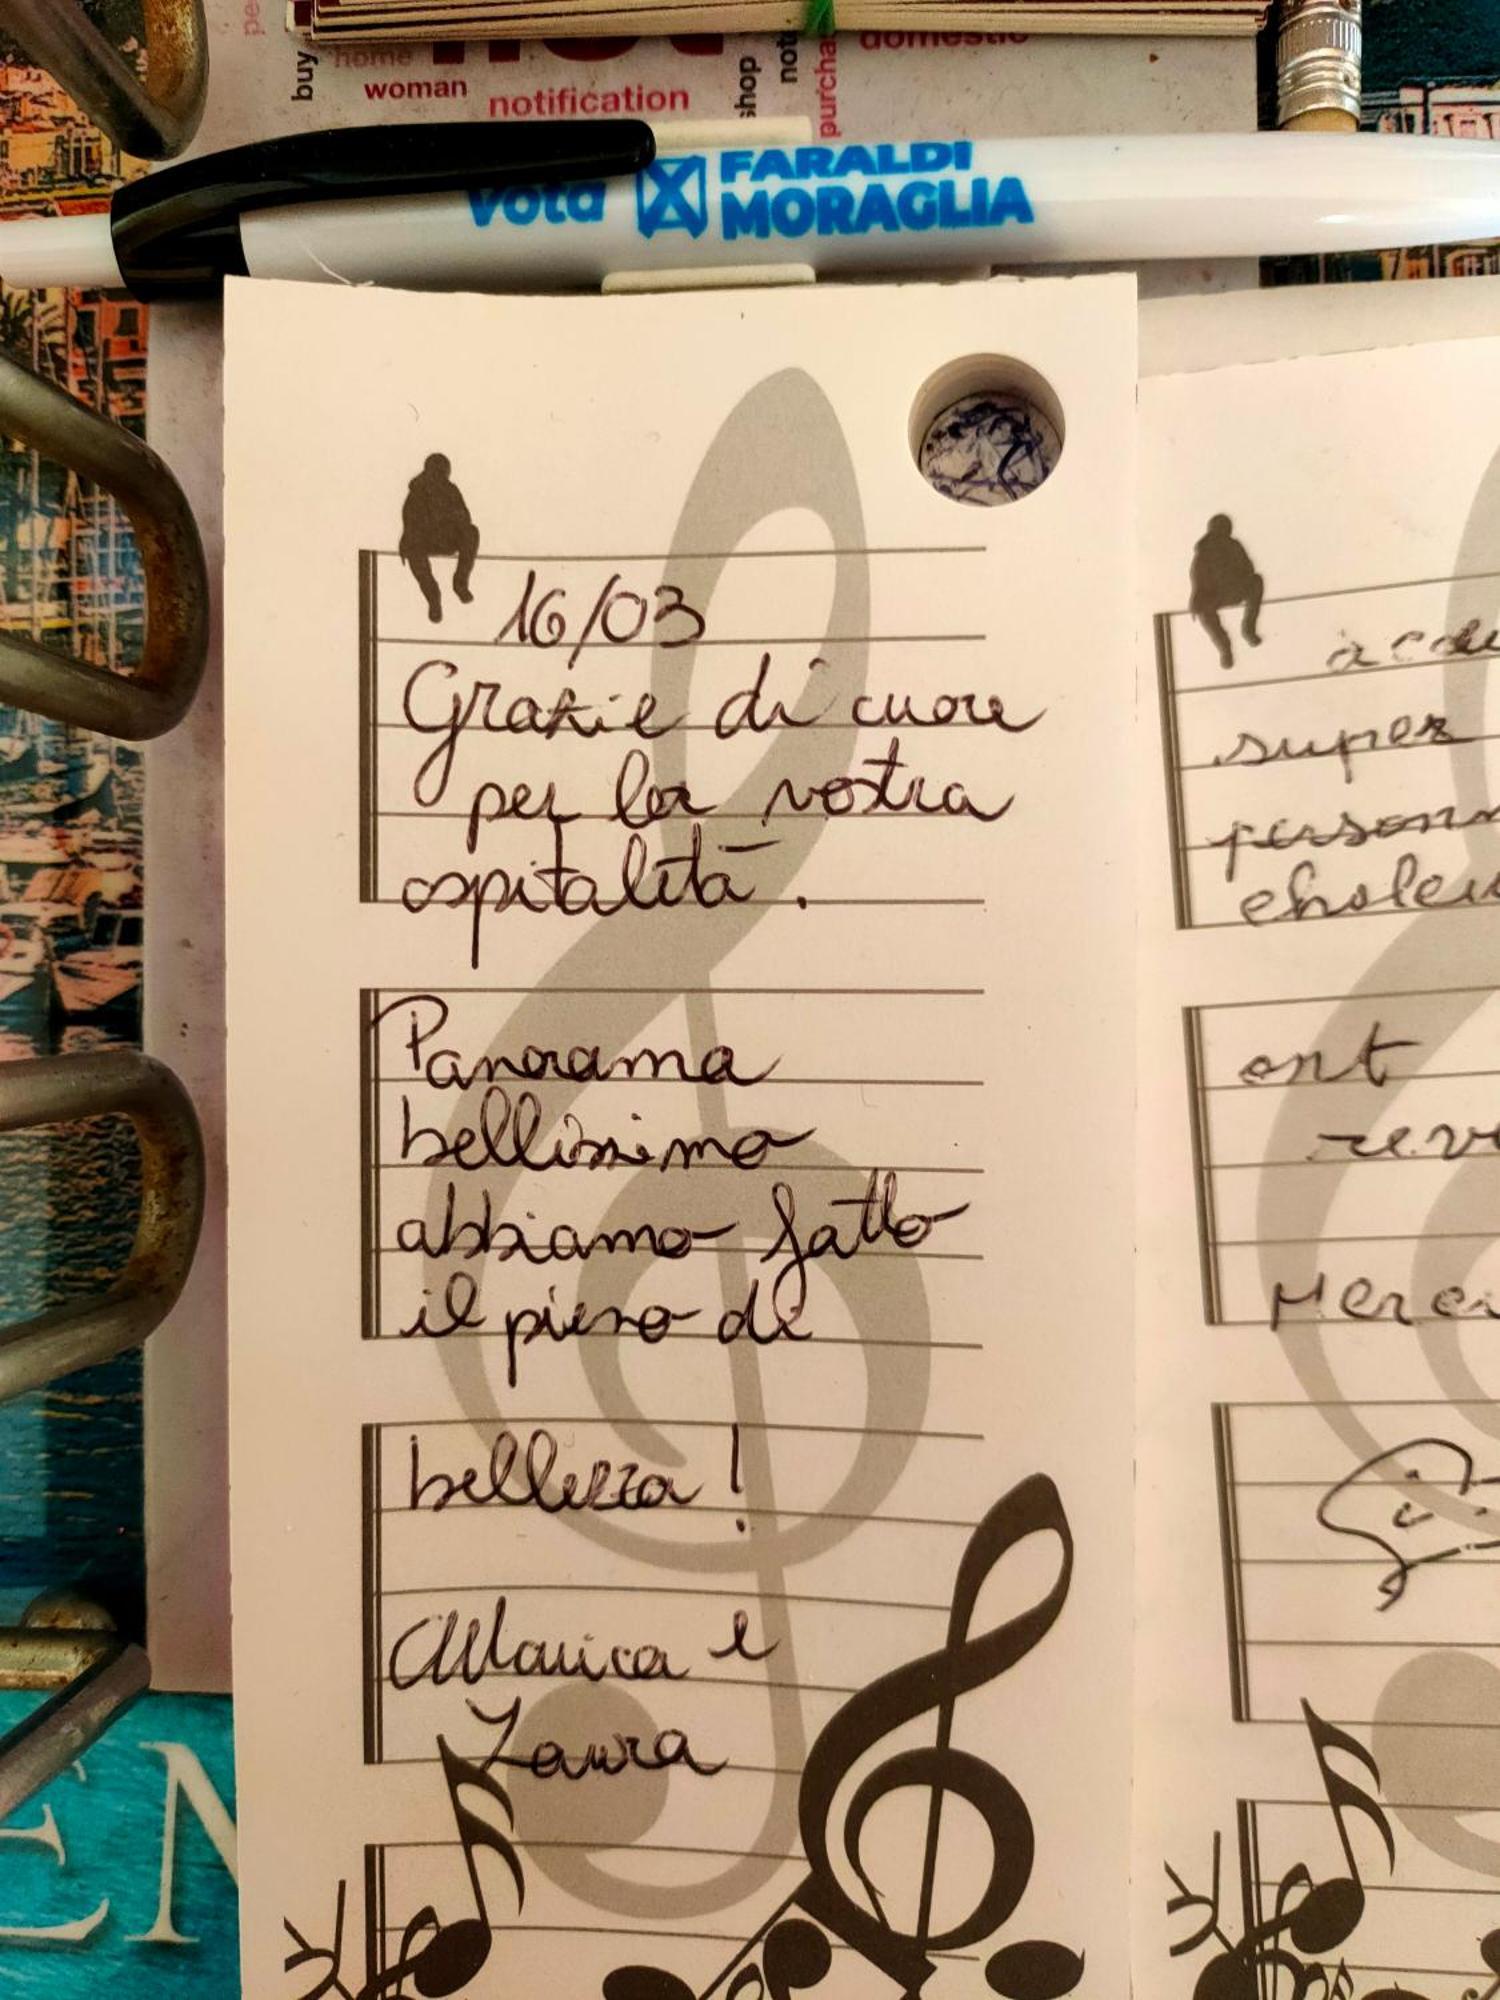 buy
home
woman
notification
shop
not
purcha
domestic
vota X FARALDI
MORAGLIA
16/03
Grazie di cuore
per la vostra
ospitalità.
Panorama
bellissimo
abbiamo fatto
il pieno di
bellezza!
Marica e
Laura
super
ont
Merci
EN